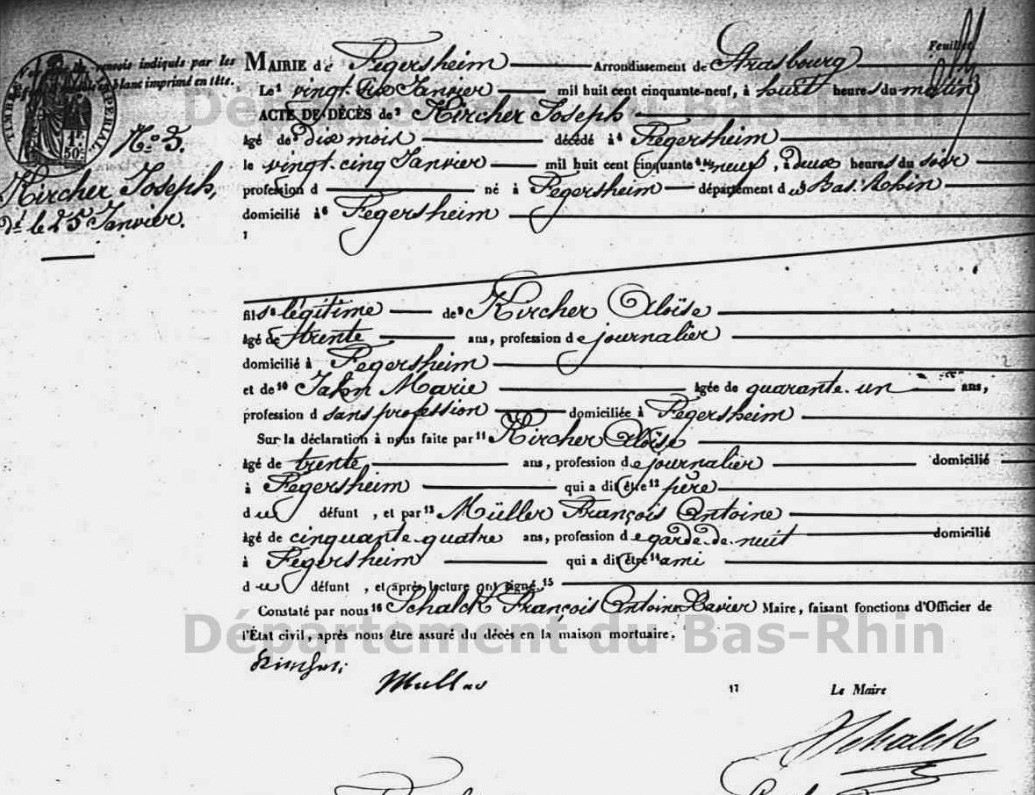 Feuillet
MAIRIE de Fegersheim Arrondissement de Strasbourg
renvois indiqués par les
blanc imprimé en tête.
TIMBRE IMPÉRIAL
50c
Le1 vingt six Janvier mil huit cent cinquante-neuf, à huit heures du matin
Département du Bas-Rhin
ACTE DE DÉCÈS de2 Kircher Joseph
No 5.
âgé de3 dix mois décédé à4 Fegersheim
le vingt-cinq Janvier mil huit cent cinquante neuf, à deux heures du soir
Kircher Joseph,
profession d né à5 Fegersheim département du Bas-Rhin
dé le 25 Janvier.
domicilié à6 Fegersheim
7
fils8 légitime de9 Kircher Aloïse
âgé de trente ans, profession de journalier
domicilié à Fegersheim
et de10 Jahn Marie âgée de quarante-un ans,
profession d sans profession domiciliée à Fegersheim
Sur la déclaration à nous faite par11 Kircher Aloïse
âgé de trente ans, profession de journalier domicilié
à Fegersheim qui a dit être12 père
du défunt , et par13 Müller François Antoine
âgé de cinquante-quatre ans, profession de garde-de-nuit domicilié
à Fegersheim qui a dit être14 ami
du défunt , et après lecture ont signé.15
Constaté par nous16 Schalck François Antoine Xavier Maire, faisant fonctions d'Officier de
l'État civil, après nous être assuré du décès en la maison mortuaire.
Département du Bas-Rhin
Muller
17 Le Maire
Schalck